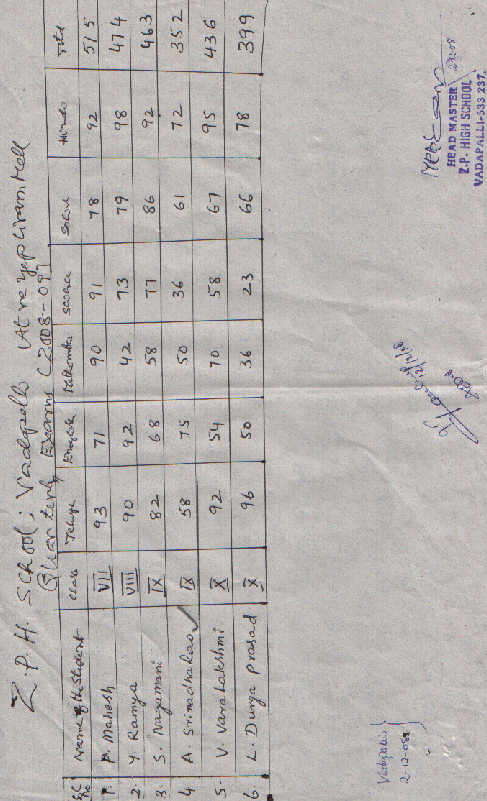 Z.P.H. School: Vadapalli (Atreyapuram Mdl
Quarterly Exams (2008-09)
Sl No Name of the Student Class Telugu English Maths Science Social Hindi Total
1. P. Mahesh VII 93 71 90 91 78 92 515
2. Y Ramya VIII 90 92 42 73 79 98 474
3. S. Nagamani IX 82 68 58 77 86 92 463
4 A. Srimadhavrao IX 58 75 50 36 61 72 352
5. V. Varalakshmi X 92 54 70 58 67 95 436
6 L. Durga Prasad X 96 50 36 23 66 78 399
Vadapalli
2-12-08
HEAD MASTER
Z.P. HIGH SCHOOL
VADAPALLI-533 237.